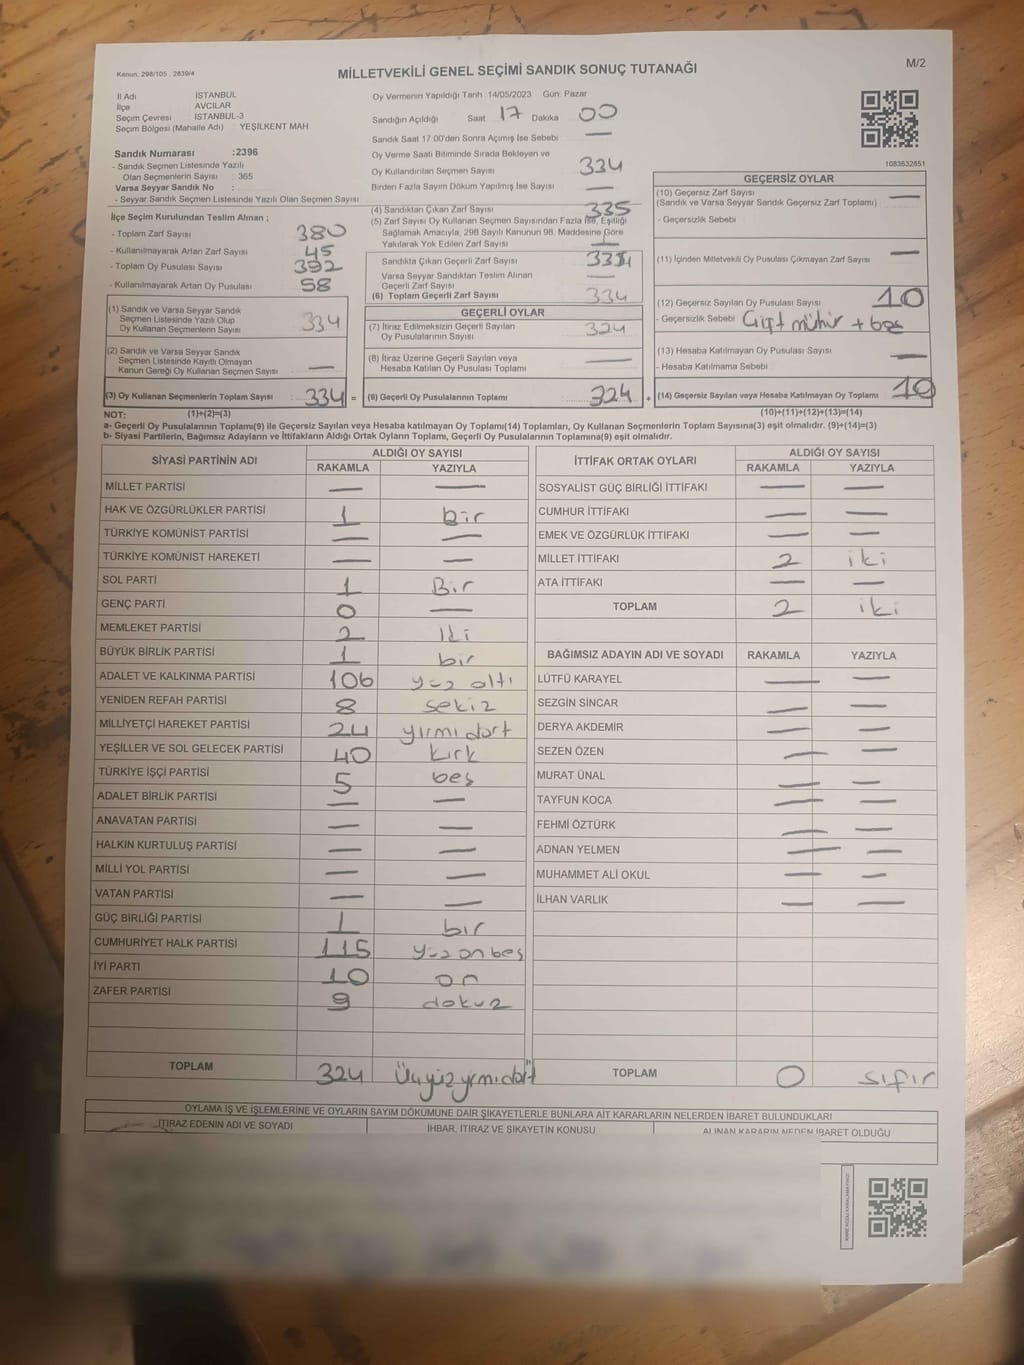 Kanun. 298/105 , 2839/4
MİLLETVEKİLİ GENEL SEÇİMİ SANDIK SONUÇ TUTANAĞI
M/2
İl Adı İSTANBUL
İlçe AVCILAR
Seçim Çevresi İSTANBUL-3
Seçim Bölgesi (Mahalle Adı) YEŞİLKENT MAH
Sandık Numarası :2396
- Sandık Seçmen Listesinde Yazılı
Olan Seçmenlerin Sayısı : 365
Varsa Seyyar Sandık No :
- Seyyar Sandık Seçmen Listesinde Yazılı Olan Seçmen Sayısı
İlçe Seçim Kurulundan Teslim Alınan ;
- Toplam Zarf Sayısı 380
- Kullanılmayarak Artan Zarf Sayısı 45
- Toplam Oy Pusulası Sayısı 392
- Kullanılmayarak Artan Oy Pusulası 58
(1) Sandık ve Varsa Seyyar Sandık
Seçmen Listesinde Yazılı Olup
Oy Kullanan Seçmenlerin Sayısı 334
(2) Sandık ve Varsa Seyyar Sandık
Seçmen Listesinde Kayıtlı Olmayan
Kanun Gereği Oy Kullanan Seçmen Sayısı —
(3) Oy Kullanan Seçmenlerin Toplam Sayısı 334 =
Oy Vermenin Yapıldığı Tarih :14/05/2023 Gün: Pazar
Sandığın Açıldığı Saat 17 Dakika 00
Sandık Saat 17.00'den Sonra Açımış İse Sebebi —
Oy Verme Saati Bitiminde Sırada Bekleyen ve
Oy Kullandırılan Seçmen Sayısı 334
Birden Fazla Sayım Döküm Yapılmış İse Sayısı —
(4) Sandıktan Çıkan Zarf Sayısı 335
(5) Zarf Sayısı Oy Kullanan Seçmen Sayısından Fazla İse, Eşitliği
Sağlamak Amacıyla, 298 Sayılı Kanunun 98. Maddesine Göre
Yakılarak Yok Edilen Zarf Sayısı 1
Sandıkta Çıkan Geçerli Zarf Sayısı
Varsa Seyyar Sandıktan Teslim Alınan
Geçerli Zarf Sayısı —
(6) Toplam Geçerli Zarf Sayısı 334
GEÇERLİ OYLAR
(7) İtiraz Edilmeksizin Geçerli Sayılan
Oy Pusulalarının Sayısı 324
(8) İtiraz Üzerine Geçerli Sayılan veya
Hesaba Katılan Oy Pusulası Toplamı —
(9) Geçerli Oy Pusulalarının Toplamı 324 +
1083632851
GEÇERSİZ OYLAR
(10) Geçersiz Zarf Sayısı —
(Sandık ve Varsa Seyyar Sandık Geçersiz Zarf Toplamı)
- Geçersizlik Sebebi
(11) İçinden Milletvekili Oy Pusulası Çıkmayan Zarf Sayısı —
(12) Geçersiz Sayılan Oy Pusulası Sayısı 10
- Geçersizlik Sebebi Çift mühür + boş
(13) Hesaba Katılmayan Oy Pusulası Sayısı —
- Hesaba Katılmama Sebebi
(14) Geçersiz Sayılan veya Hesaba Katılmayan Oy Toplamı 10
NOT: (1)+(2)=(3) (10)+(11)+(12)+(13)=(14)
a- Geçerli Oy Pusulalarının Toplamı(9) ile Geçersiz Sayılan veya Hesaba katılmayan Oy Toplamı(14) Toplamları, Oy Kullanan Seçmenlerin Toplam Sayısına(3) eşit olmalıdır. (9)+(14)=(3)
b- Siyasi Partilerin, Bağımsız Adayların ve İttifakların Aldığı Ortak Oyların Toplamı, Geçerli Oy Pusulalarının Toplamına(9) eşit olmalıdır.
SİYASİ PARTİNİN ADI ALDIĞI OY SAYISI
RAKAMLA YAZIYLA
MİLLET PARTİSİ — —
HAK VE ÖZGÜRLÜKLER PARTİSİ 1 bir
TÜRKİYE KOMÜNİST PARTİSİ — —
TÜRKİYE KOMÜNİST HAREKETİ — —
SOL PARTİ 1 Bir
GENÇ PARTİ 0 —
MEMLEKET PARTİSİ 2 İki
BÜYÜK BİRLİK PARTİSİ 1 bir
ADALET VE KALKINMA PARTİSİ 106 yüz altı
YENİDEN REFAH PARTİSİ 8 sekiz
MİLLİYETÇİ HAREKET PARTİSİ 24 yirmi dört
YEŞİLLER VE SOL GELECEK PARTİSİ 40 kırk
TÜRKİYE İŞÇİ PARTİSİ 5 beş
ADALET BİRLİK PARTİSİ — —
ANAVATAN PARTİSİ — —
HALKIN KURTULUŞ PARTİSİ — —
MİLLİ YOL PARTİSİ — —
VATAN PARTİSİ — —
GÜÇ BİRLİĞİ PARTİSİ 1 bir
CUMHURİYET HALK PARTİSİ 115 yüz on beş
İYİ PARTİ 10 on
ZAFER PARTİSİ 9 dokuz
TOPLAM 324 Üçyüz yirmi dört
İTTİFAK ORTAK OYLARI ALDIĞI OY SAYISI
RAKAMLA YAZIYLA
SOSYALİST GÜÇ BİRLİĞİ İTTİFAKI — —
CUMHUR İTTİFAKI — —
EMEK VE ÖZGÜRLÜK İTTİFAKI — —
MİLLET İTTİFAKI 2 iki
ATA İTTİFAKI — —
TOPLAM 2 iki
BAĞIMSIZ ADAYIN ADI VE SOYADI RAKAMLA YAZIYLA
LÜTFÜ KARAYEL — —
SEZGİN SİNCAR — —
DERYA AKDEMİR — —
SEZEN ÖZEN — —
MURAT ÜNAL — —
TAYFUN KOCA — —
FEHMİ ÖZTÜRK — —
ADNAN YELMEN — —
MUHAMMET ALİ OKUL — —
İLHAN VARLIK — —
TOPLAM 0 sıfır
OYLAMA İŞ VE İŞLEMLERİNE VE OYLARIN SAYIM DÖKÜMÜNE DAİR ŞİKAYETLERLE BUNLARA AİT KARARLARIN NELERDEN İBARET BULUNDUKLARI
İTİRAZ EDENİN ADI VE SOYADI İHBAR, İTİRAZ VE ŞİKAYETİN KONUSU ALINAN KARARIN NEDEN İBARET OLDUĞU